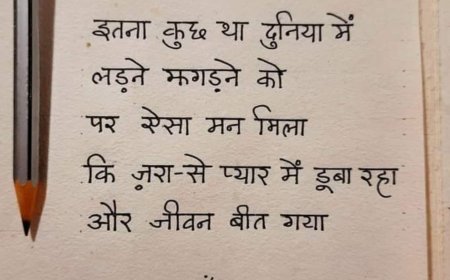 इतना कुछ था दुनिया में
लड़ने झगड़ने को
पर ऐसा मन मिला
कि ज़रा-से प्यार में डूबा रहा
और जीवन बीत गया